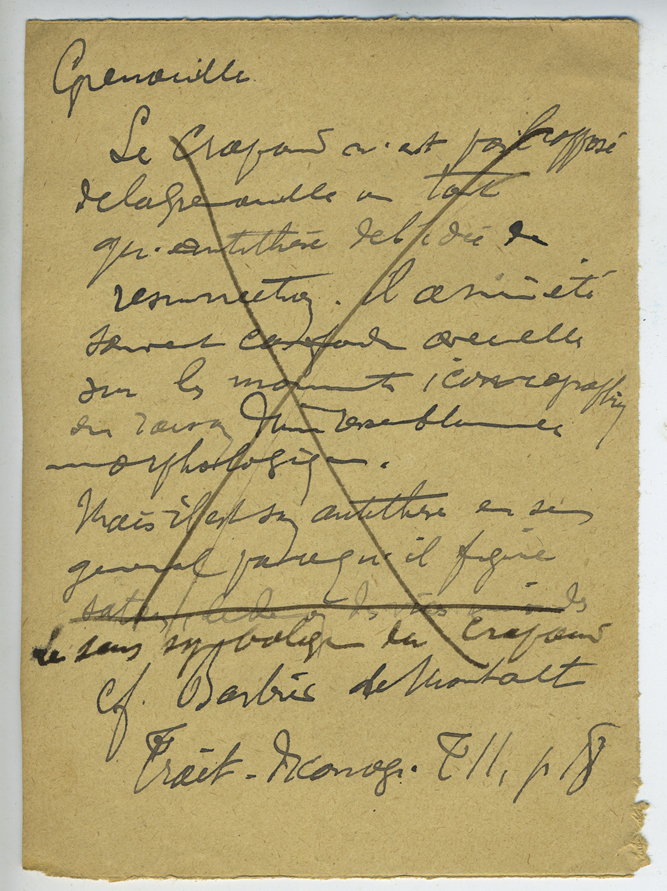 Grenouille
Le Crapaud n'est pas l'opposé
de la Grenouille en tant
qu'antithèse de l'idée de
resurrection. Il a été
souvent confondu avec elle
sur les monuments iconographiq
en raison d'une ressemblance
morphologique.
Mais il est son antithèse en sens
general parce qu'il figure
des
Le sens symbolique du Crapaud
cf. Barbier de Montault
Trait. Iconogr. T II, p